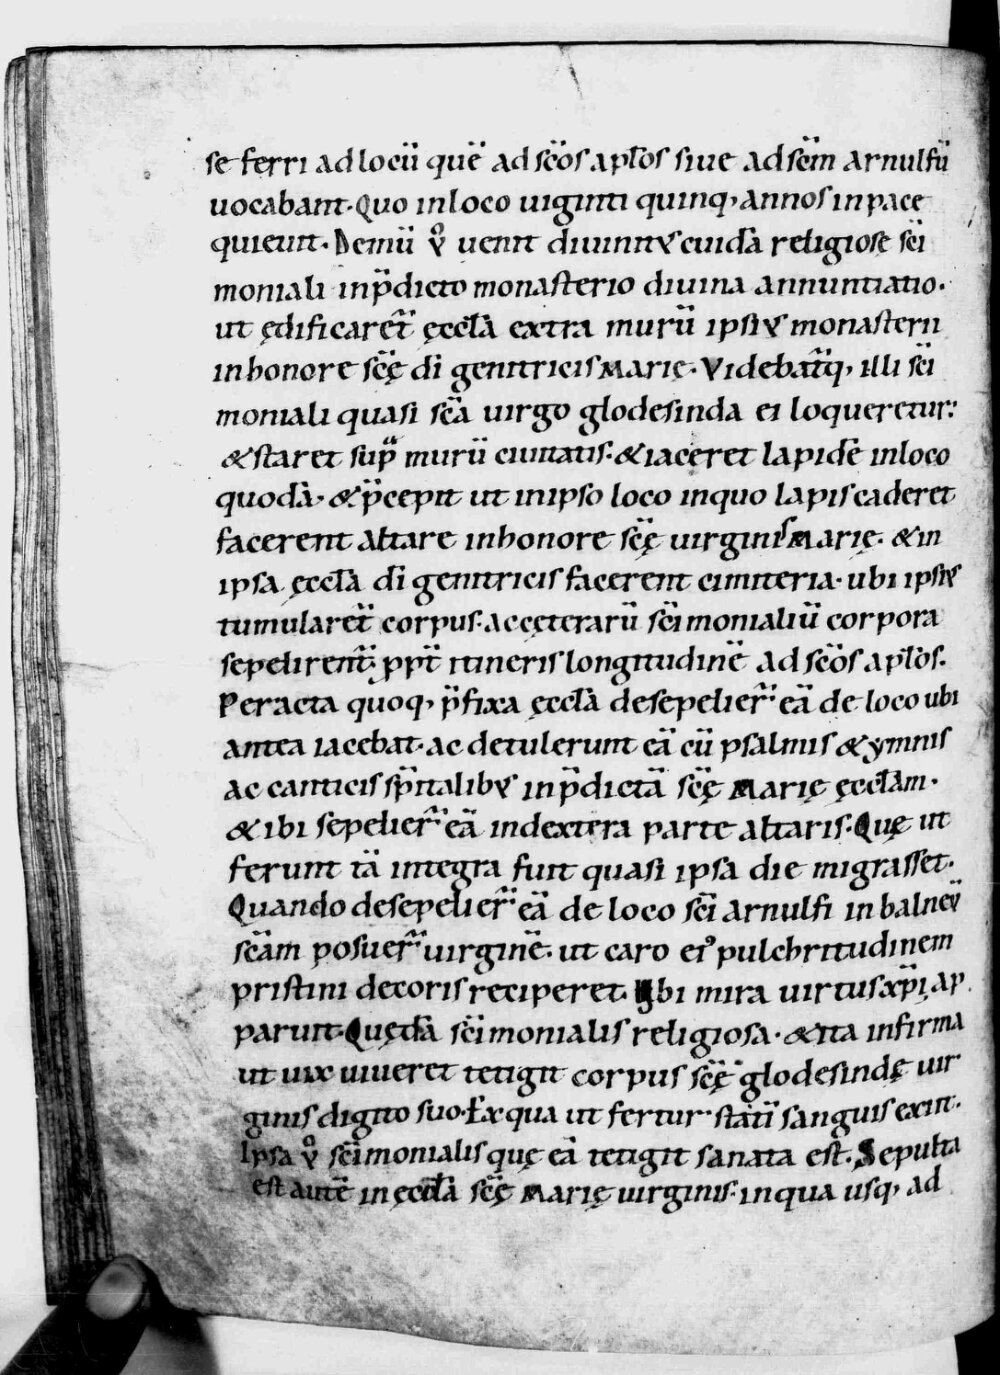 se ferri ad locū quē ad sc̄os apl̄os siue ad sc̄m arnulfū
uocabant. Quo in loco uiginti quinq; annos in pace
quieuit. Demū ỷ uenit diuinitꝰ cuidā religiose sc̄i
moniali in p̄dicto monasterio diuina annuntiatio.
ut ędificaret᷑ ęccl̄a extra murū ipsiꝰ monasterii
in honore sc̄ę dī genitricis Marię. Videbat᷑q; illi sc̄i
moniali quasi sc̄a uirgo glodesinda ei loqueretur:
& staret sup̄ murū ciuitatis. & iaceret lapidē in loco
quodā, & p̄cepit ut in ipso loco in quo lapis caderet
facerent altare in honore sc̄ę uirginis Marię. & in
ipsa ęccl̄a dī genitricis facerent cimiteria. ubi ipsiꝰ
tumularet᷑ corpus. ac cęterarū sc̄imonialiū corpora
sepelirent᷑. ppt̄ itineris longitudinē ad sc̄os apl̄os.
Peracta quoq; p̄fixa ęccl̄a desepelier̄ eā de loco ubi
antea iacebat. ac detulerunt eā cū psalmis & ymnis
ac canticis sp̄italibꝰ in p̄dictā sc̄ę Marię ęccl̄am.
& ibi sepelier̄ eā in dextera parte altaris. Quę ut
ferunt tā integra fuit quasi ipsa die migrasset.
Quando desepelier̄ eā de loco sc̄i arnulfi in balneꝰ̄
sc̄am posuer̄ uirginē. ut caro eiꝰ pulchritudinem
pristini decoris reciperet. Ubi mira uirtus xp̄i ap
paruit. Quędā sc̄imonialis religiosa. & ita infirma
ut uix uiueret tetigit corpus sc̄ę glodesindę uir
ginis digito suo. Ex qua ut fertur statī sanguis exiit.
Ipsa ỷ sc̄imonialis quę eā tetigit sanata est. Sepulta
est autē in ęccl̄a sc̄ę Marię uirginis. in qua usq; ad